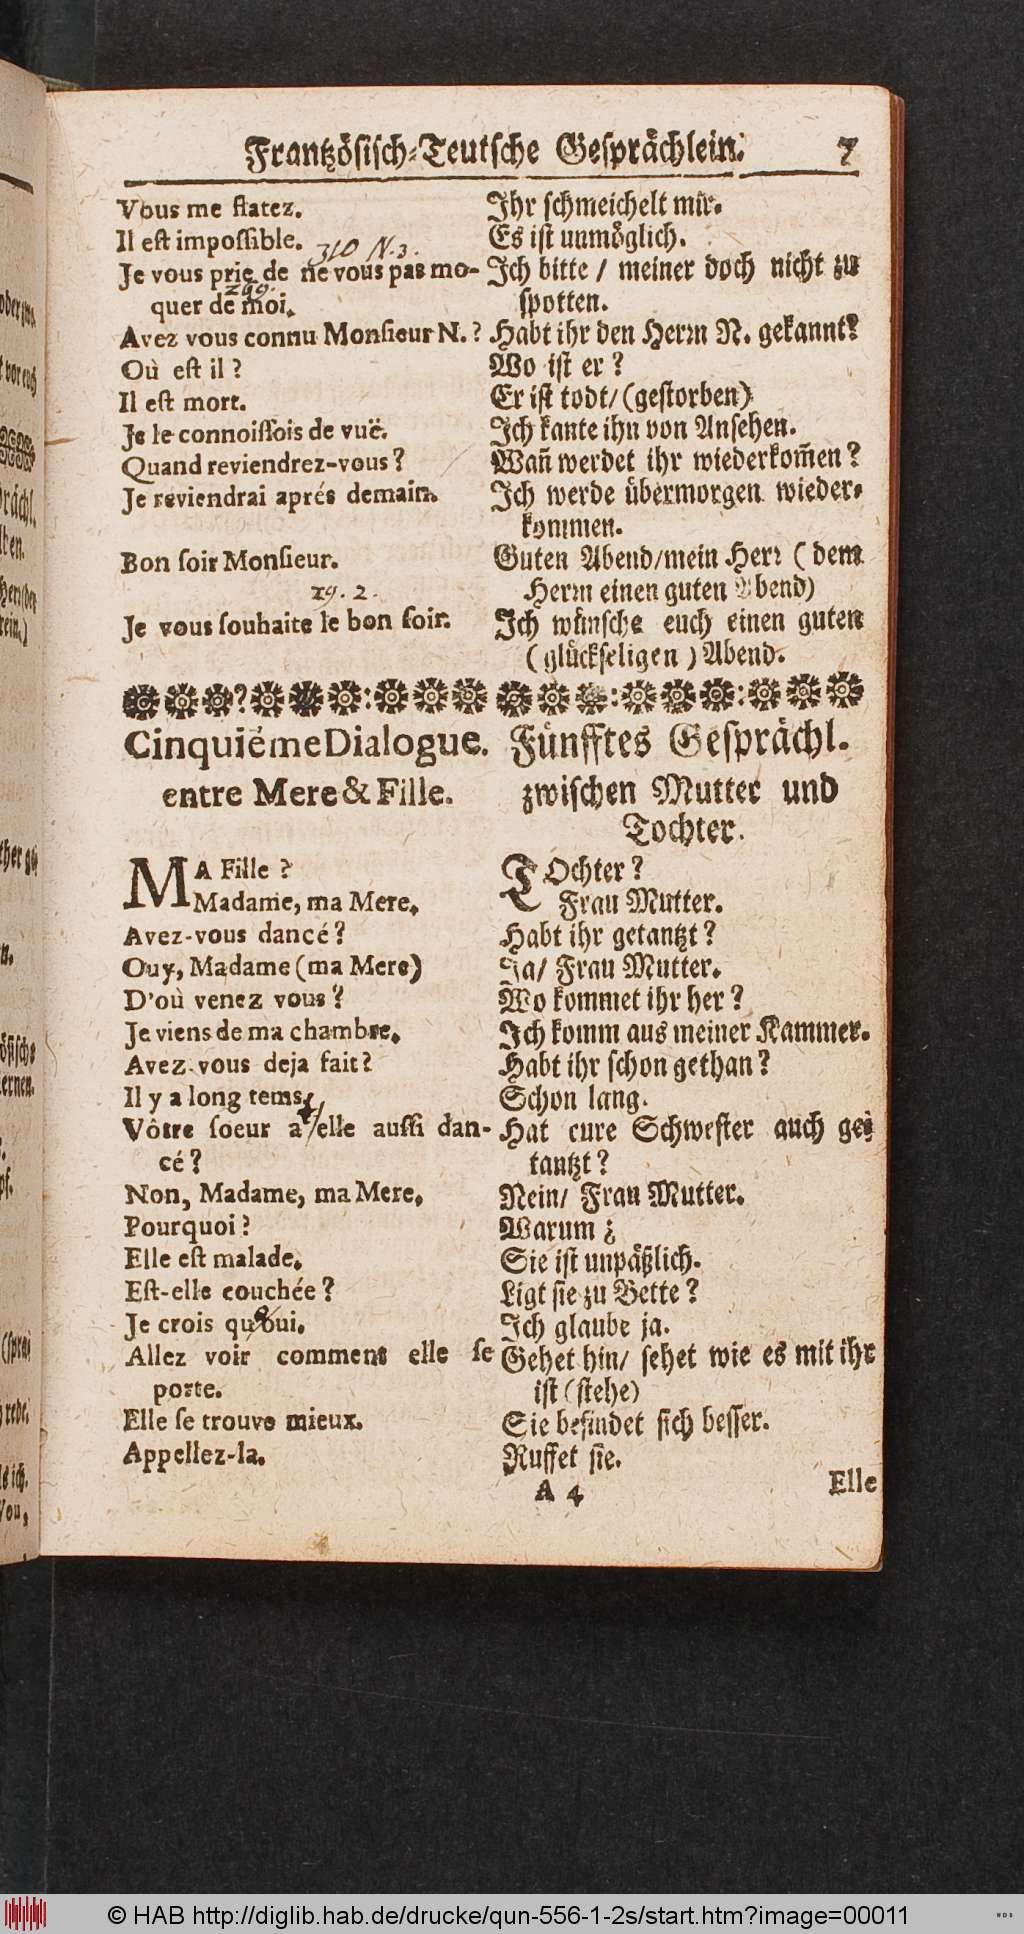 Frantzösisch-Teutsche Gesprächlein. 7
Vous me flatez.
Il est impossible.
310 N.3.
Je vous prie de ne vous pas mo-
299.
quer de moi.
Avez vous connu Monsieur N.?
Où est il?
Il est mort.
Je le connoissois de vuë.
Quand reviendrez-vous?
Je reviendrai aprés demain.
Bon soir Monsieur.
29. 2.
Je vous souhaite le bon soir.
Ihr schmeichelt mir.
Es ist unmöglich.
Ich bitte / meiner doch nicht zu
spotten.
Habt ihr den Herrn N. gekannt?
Wo ist er?
Er ist todt/ (gestorben)
Ich kante ihn von Ansehen.
Wañ werdet ihr wiederkom̃en?
Ich werde übermorgen wieder-
kommen.
Guten Abend/mein Herr (dem
Herrn einen guten Abend)
Ich wünsche euch einen guten
(glückseligen) Abend.
Cinquiéme Dialogue.
entre Mere & Fille.
MA Fille?
Madame, ma Mere.
Avez-vous dancé?
Ouy, Madame (ma Mere)
D'où venez vous?
Je viens de ma chambre.
Avez vous deja fait?
Il y a long tems.
Vôtre soeur a elle aussi dan-
cé?
Non, Madame, ma Mere.
Pourquoi?
Elle est malade.
Est-elle couchée?
Je crois qu'oui.
Allez voir comment elle se
porte.
Elle se trouve mieux.
Appellez-la.
Fünfftes Gesprächl.
zwischen Mutter und
Tochter.
TOchter?
Frau Mutter.
Habt ihr getantzt?
Ja/ Frau Mutter.
Wo kommet ihr her?
Ich komm aus meiner Kammer.
Habt ihr schon gethan?
Schon lang.
Hat eure Schwester auch ge-
tantzt?
Nein/ Frau Mutter.
Warum?
Sie ist unpäßlich.
Ligt sie zu Bette?
Ich glaube ja.
Gehet hin/ sehet wie es mit ihr
ist (stehe)
Sie befindet sich besser.
Ruffet sie.
A 4
Elle
© HAB http://diglib.hab.de/drucke/qun-556-1-2s/start.htm?image=00011